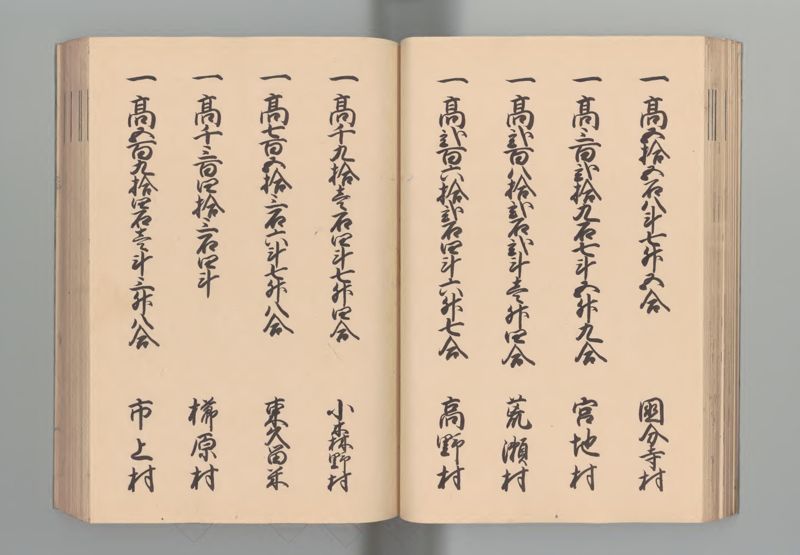 一高五拾五石八斗七升五合 國分寺村
一高三百弐拾九石七斗五升九合 宮地村
一高弐百八拾弐石弐斗壱升四合 荒瀬村
一高弐百六拾弐石四斗六升七合 高野村
一高千九拾壱石四斗七升四合 小森野村
一高七百五拾三石六斗七升八合 東久留米
一高千三百四拾三石四斗 櫛原村
一高五百九拾四石壱斗三升八合 市上村